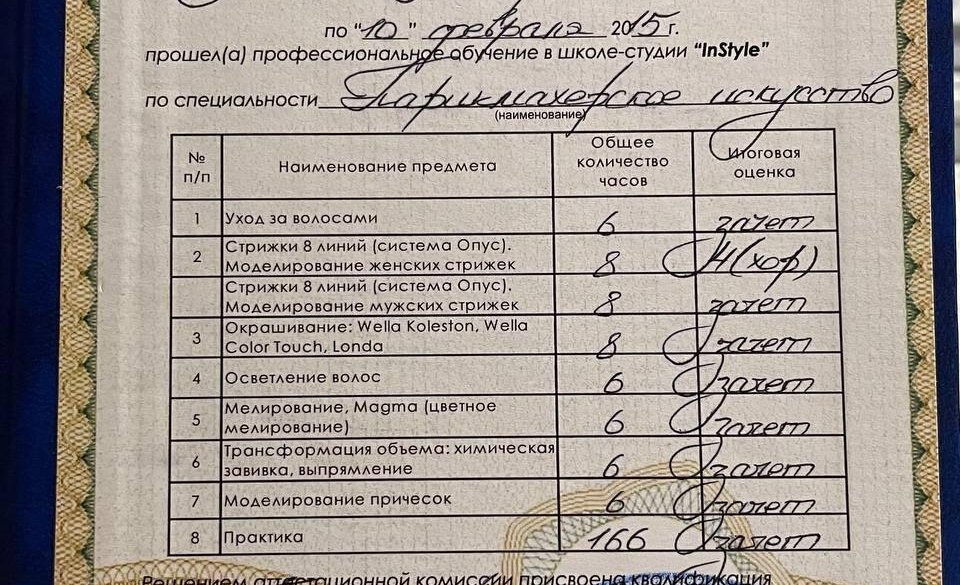 по "10" февраля 2015 г.
прошел(а) профессиональное обучение в школе-студии "InStyle"
по специальности Парикмахерское искусство
(наименование)
№ п/п Наименование предмета Общее количество часов Итоговая оценка
1 Уход за волосами 6 зачет
2 Стрижки 8 линий (система Опус). Моделирование женских стрижек 8 4(хор)
Стрижки 8 линий (система Опус). Моделирование мужских стрижек 8 зачет
3 Окрашивание: Wella Koleston, Wella Color Touch, Londa 8 зачет
4 Осветление волос 6 зачет
5 Мелирование, Magma (цветное мелирование) 6 зачет
6 Трансформация объема: химическая завивка, выпрямление 6 зачет
7 Моделирование причесок 6 зачет
8 Практика 166 зачет
Решением аттестационной комиссии присвоена квалификация